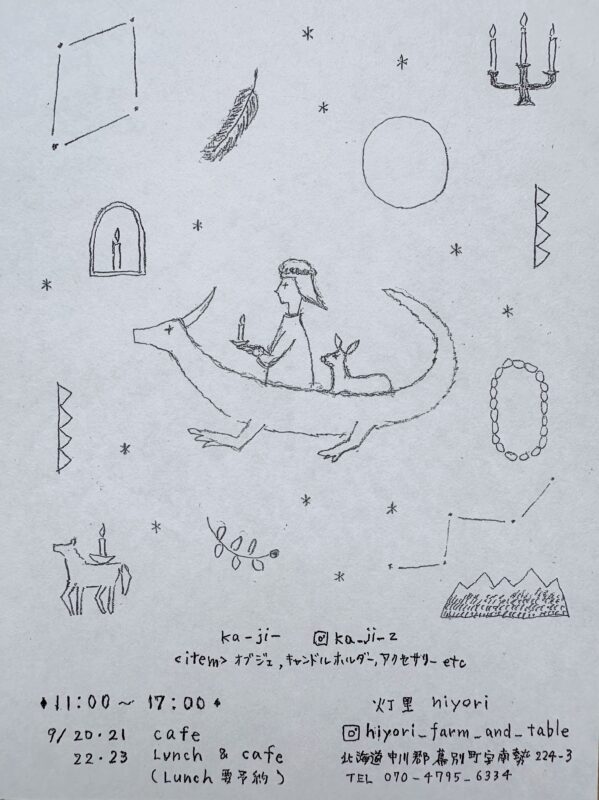 ka-ji-
ka_ji_2
<item> オブジェ, キャンドルホルダー, アクセサリー etc
11:00〜17:00
9/20・21 cafe
22・23 Lunch & cafe
(Lunch 要予約)
灯里 hiyori
hiyori_farm_and_table
北海道中川郡幕別町字南勢 224-3
TEL 070-4795-6334